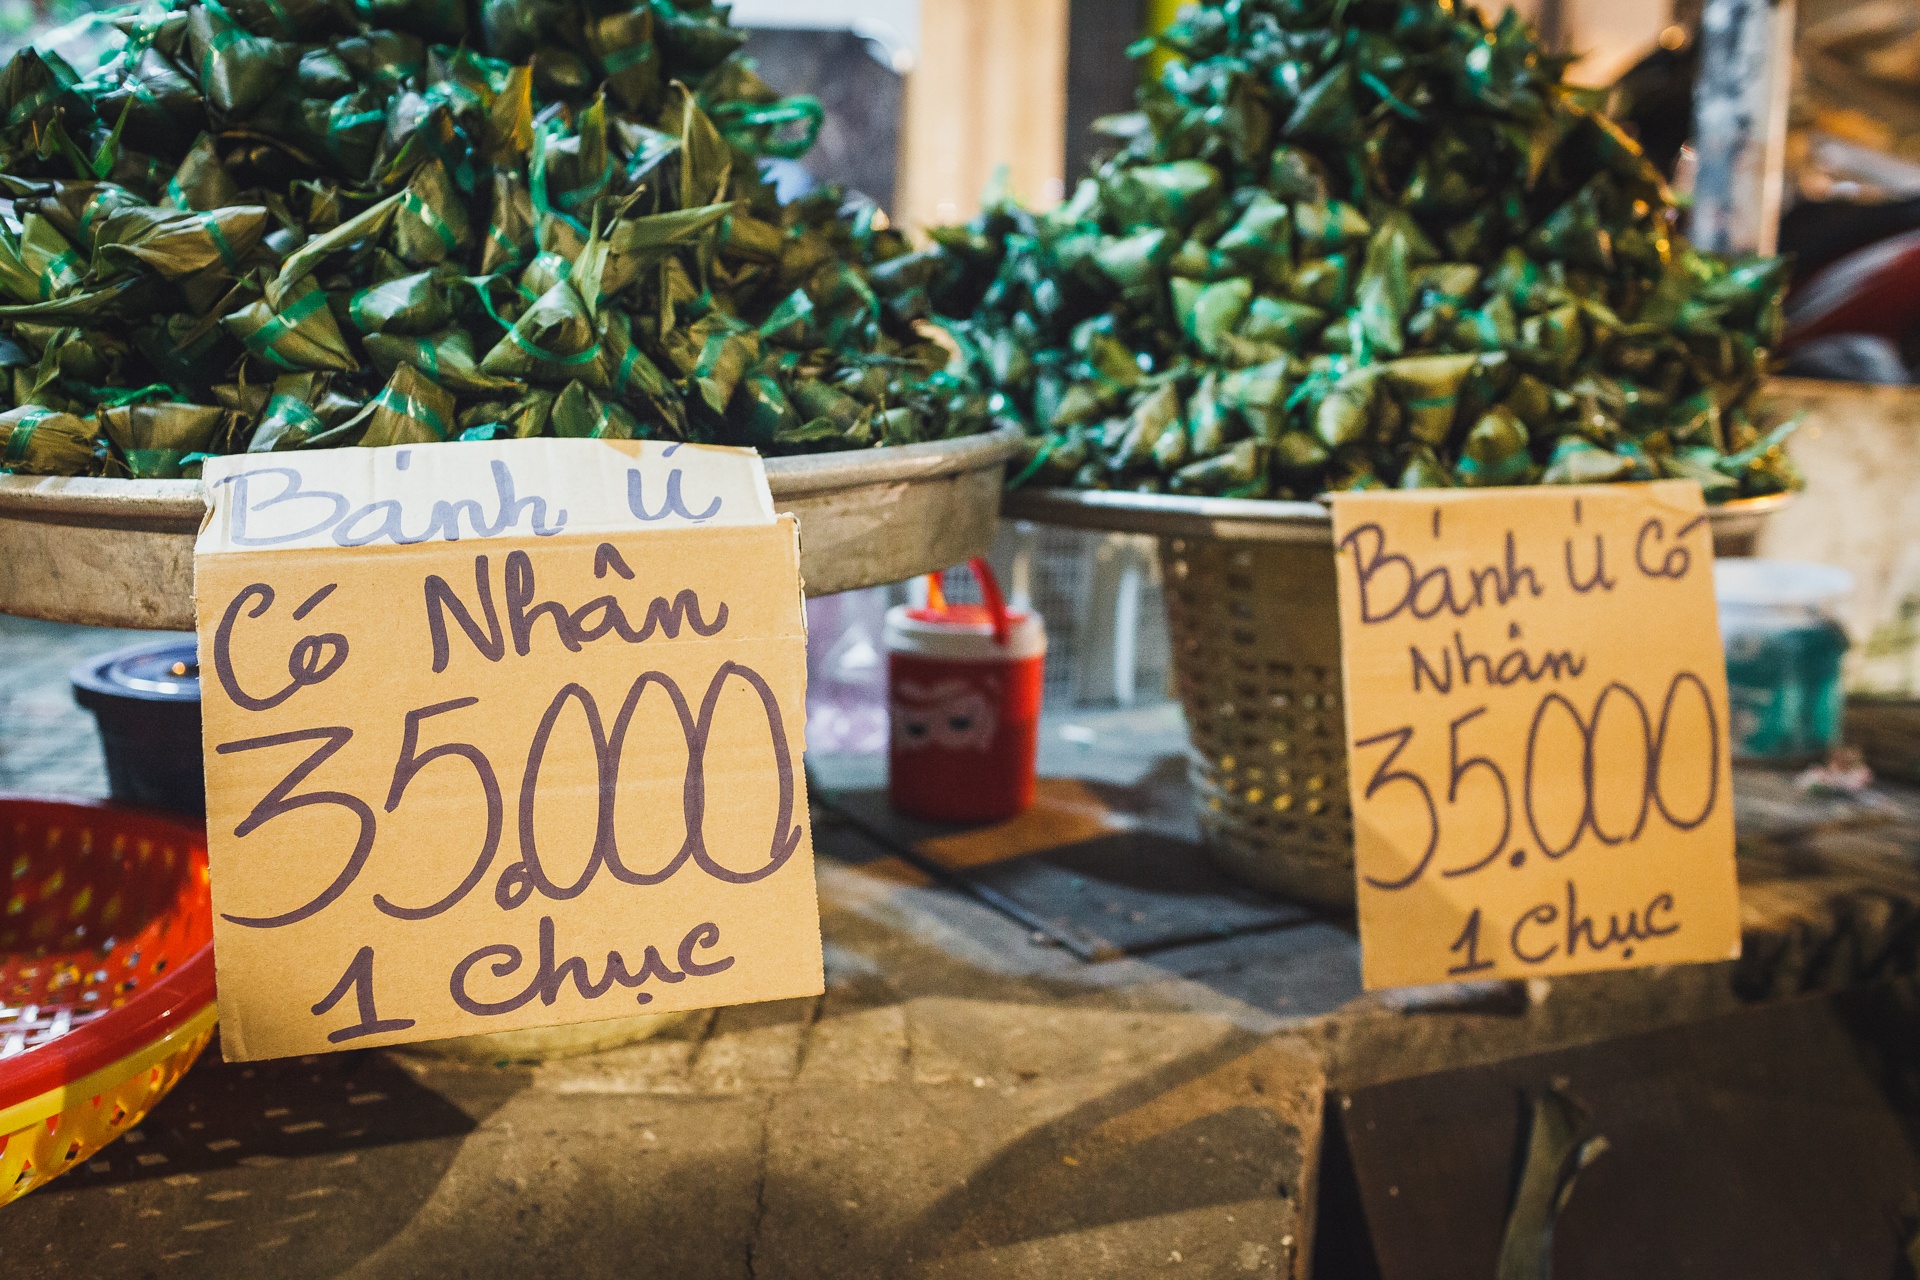 Bánh Ú
Có Nhân
35.000
1 chục
Bánh Ú Có
Nhân
35.000
1 chục